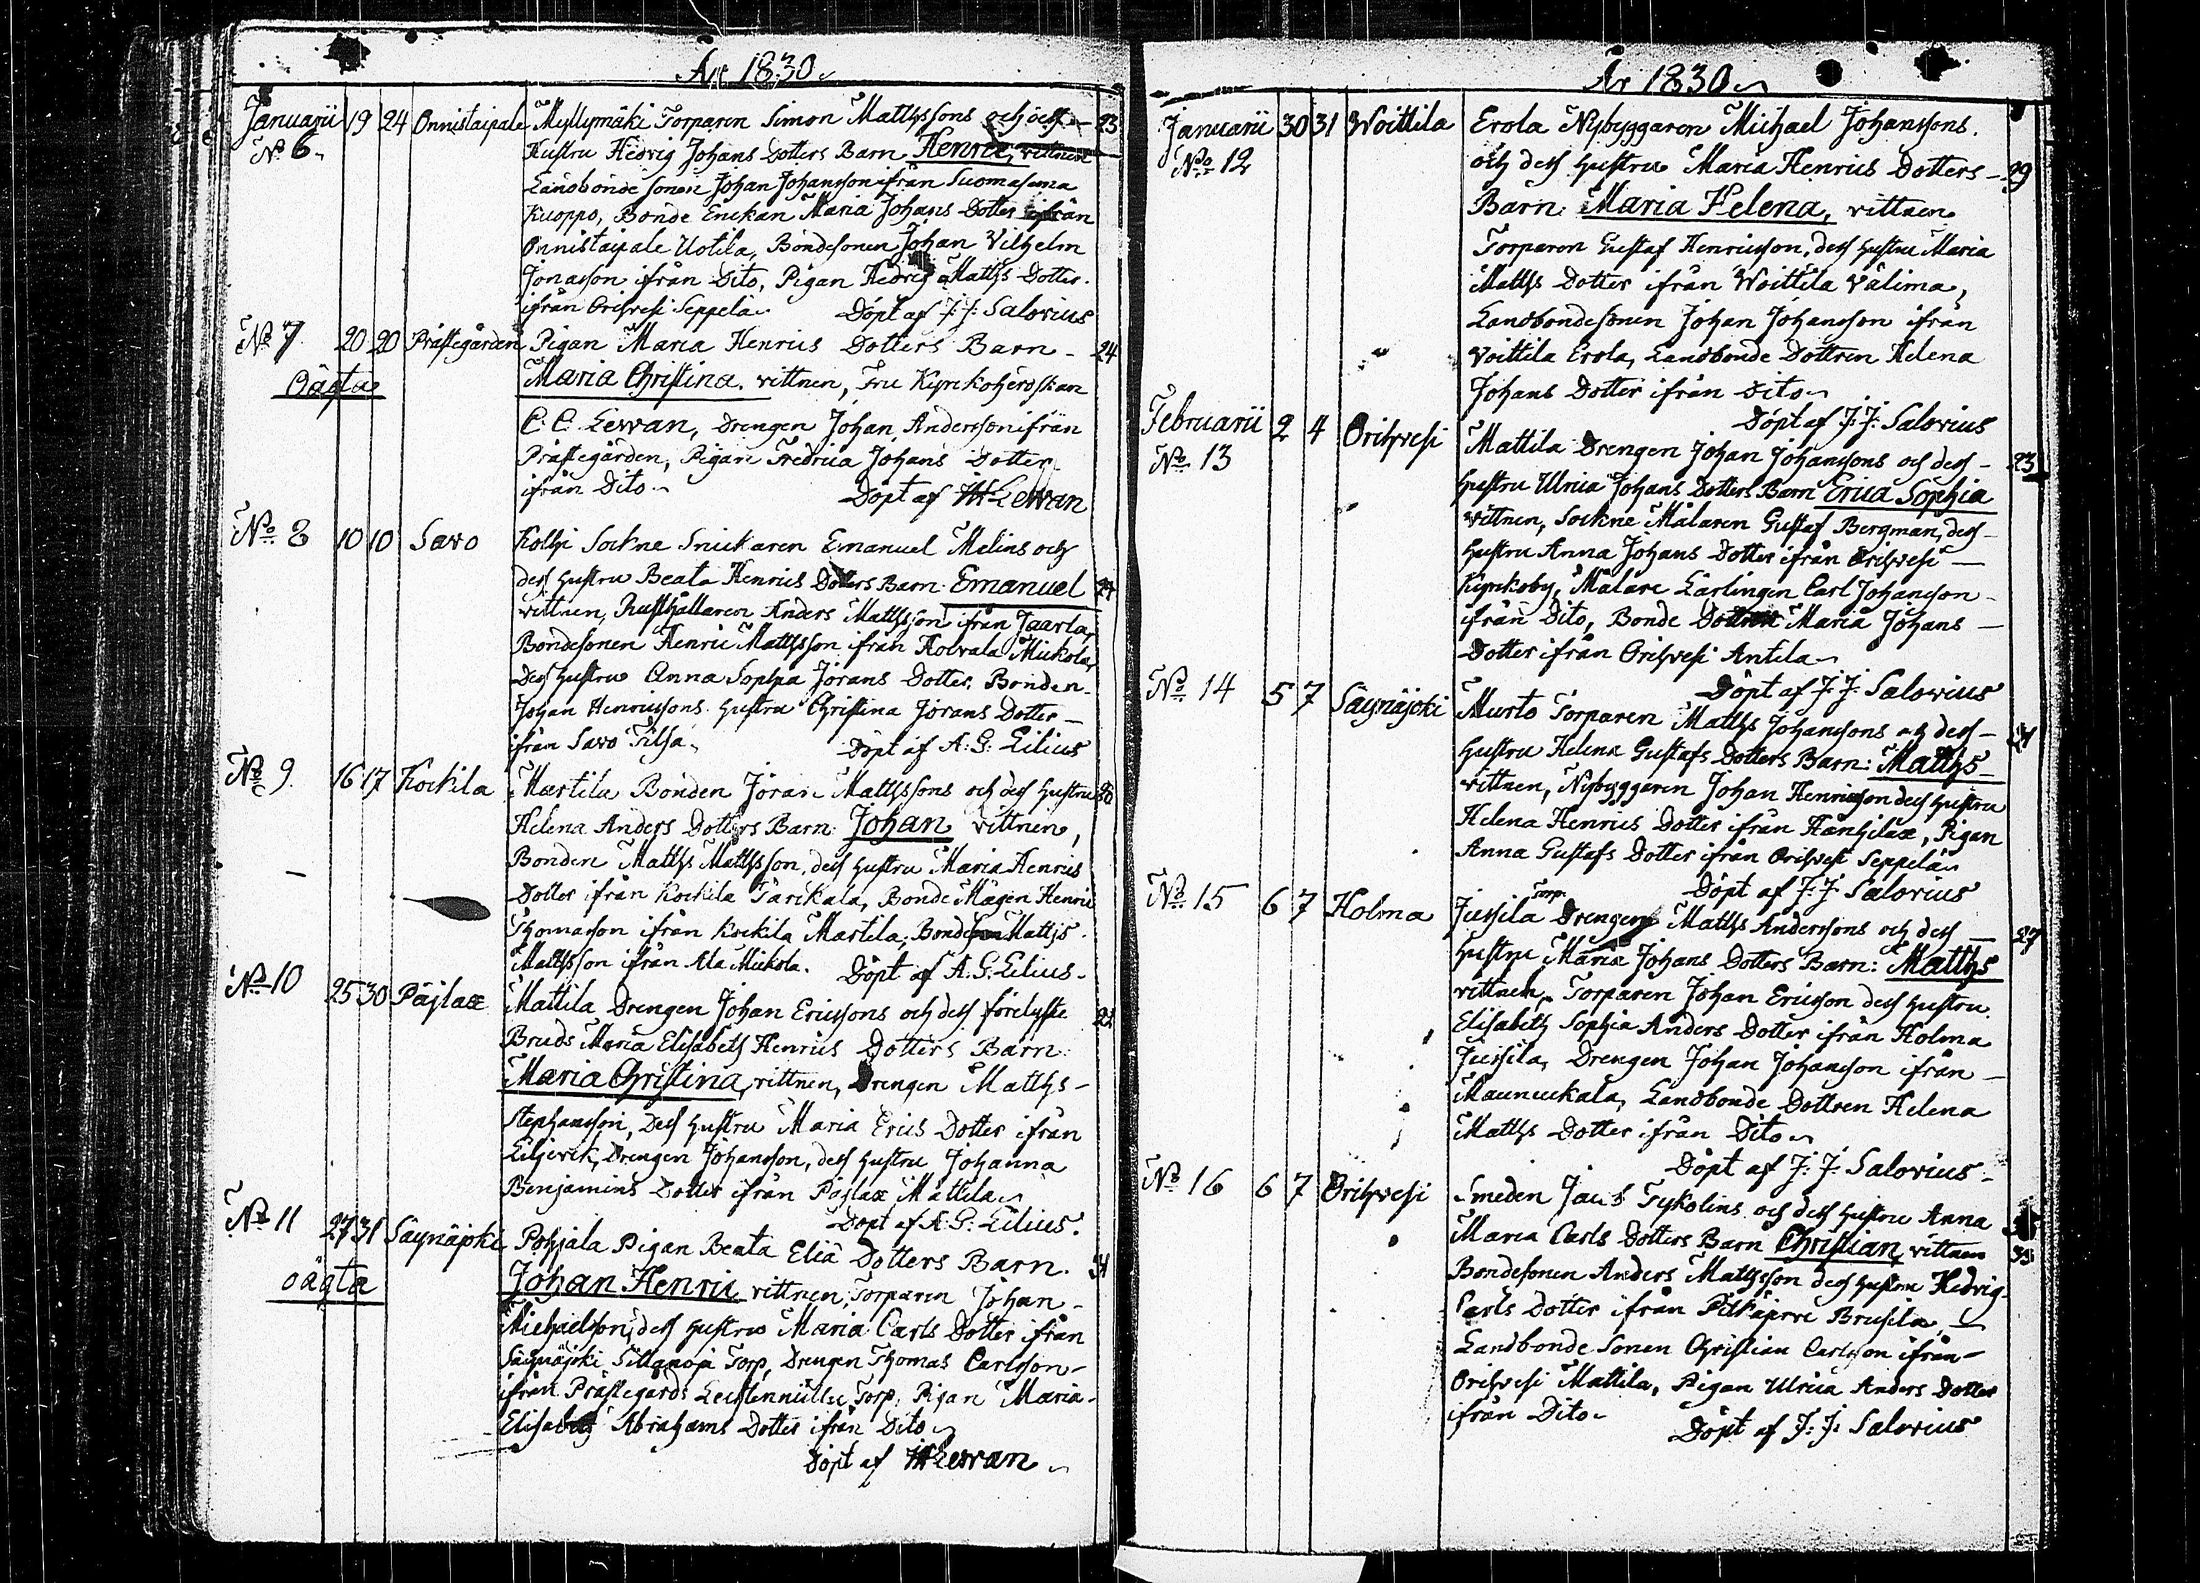 År 1830
Januarii 19 24 Onnistaipale Myllymäki Torparen Simon Matthssons och dess 23
No 6. Hustru Hedvig Johans Dotters Barn Henric, vittnen
Landbonde sonen Johan Johansson ifrån Suomasema
Kuoppo, Bonde Enckan Maria Johans Dotter ifrån
Onnistaipale Uotila, Bondesonen Johan Vilhelm
Jonasson ifrån Dito, Pigan Hedvig Matths Dotter
ifrån Orihvesi Seppelä Döpt af J: J: Salovius
No 7 20 20 Prästegården Pigan Maria Henrics Dotters Barn 24
Oägta Maria Christina. vittnen, Fru Kyrckoherdskan
C: C: Levan, Drengen Johan Andersson ifrån
Prästegården, Pigan Fredrica Johans Dotter
ifrån Dito Döpt af Levan
No 8 10 10 Savo Kolhi Sockne Snickaren Emanuel Melins och
dess Hustru Beata Henrics Dotters Barn Emanuel
vittnen, Rusthållaren Anders Matthsson ifrån Jaarla,
Bondesonen Henric Matthsson ifrån Kolvala Mickola,
Dess Hustru Anna Sophia Jörans Dotter, Bonden
Johan Henricssons Hustru Christina Jörans Dotter
ifrån Savo Döpt af A: G: Lilius
No 9 16 17 Kockila Martila Bonden Jöran Matthssons och dess Hustru
Helena Anders Dotters Barn: Johan vittnen,
Bonden Matths Matthsson, dess Hustru Maria Henrics
Dotter ifrån Kockila Tarckala, Bonde Mågen Henric
Thomasson ifrån Kockila Martila, Bondeson Matths
Matthsson ifrån Ala Mickola. Döpt af A. G. Lilius
No 10 25 30 Päjlax Mattila Drengen Johan Ericssons och dess förelyste 22
Bruds Maria Elisabeth Henrics Dotters Barn:
Maria Christina, vittnen, Drengen Matths
Stephansson, Dess Hustru Maria Erics Dotter ifrån
Drengen Johansson, dess Hustru Johanna
Benjamins Dotter ifrån Päjlax Mattila
Döpt af A: G: Lilius.
No 11 27 31 Säynäjoki Pohjala Pigan Beata Eliä Dotters Barn.
oägta Johan Henric vittnen, Torparen Johan
Michaelsson, dess Hustru Maria Carls Dotter ifrån
Säynäjoki Torp, Drengen Thomas Carlsson
ifrån Prästegårds Torp, Pigan Maria
Elisabeth Abrahams Dotter ifrån Dito
Döpt af Levan
År 1830
Januarii 30 31 Woittila Erola Nybyggaren Michael Johanssons
No 12 och dess Hustru Maria Henrics Dotters 29
Barn: Maria Helena, vittnen
Torparen Gustaf Henricsson, dess Hustru Maria
Matths Dotter ifrån Woittila Välima,
Landbondesonen Johan Johansson ifrån
Voittila Erola, Landbonde Dottren Helena
Johans Dotter ifrån Dito
Döpt af J: J: Salovius
Februarii 2 4 Orihvesi Mattila Drengen Johan Johanssons och dess 23
No 13 Hustru Ulrica Johans Dotters Barn Erica Sophia
vittnen, Sockne Målaren Gustaf Bergman, dess
Hustru Anna Johans Dotter ifrån Orihvesi
Kyrckoby, Målare Lärlingen Carl Johansson
ifrån Dito, Bonde Dottren Maria Johans
Dotter ifrån Orihvesi Antila
Döpt af J: J: Salovius
No 14 5 7 Säynäjoki Murto Torparen Matths Johanssons och dess
Hustru Helena Gustafs Dotters Barn: Matths
vittnen, Nybyggaren Johan Henricsson dess Hustru
Helena Henrics Dotter ifrån, Pigan
Anna Gustafs Dotter ifrån Orihvesi Seppelä
Döpt af J: J: Salovius
No 15 6 7 Holma Jussila Torp. Drengen Matths Anderssons och dess 27
Hustru Maria Johans Dotters Barn: Matths
vittnen, Torparen Johan Ericsson dess Hustru
Elisabeth Sophia Anders Dotter ifrån Holma
Jussila, Drengen Johan Johansson ifrån
Maunuckala, Landbonde Dottren Helena
Matths Dotter ifrån Dito
Döpt af J: J: Salovius
No 16 6 7 Orihvesi Smeden Jacob Tykolins och dess Hustru Anna
Maria Carls Dotters Barn Christian, vittnen 35
Bondesonen Anders Matthsson dess Hustru Hedvig
Carls Dotter ifrån Pitkäjärvi Brusila,
Landbonde Sonen Christian Carlsson ifrån
Orihvesi Mattila, Pigan Ulrica Anders Dotter
ifrån Dito
Döpt af J: J: Salovius